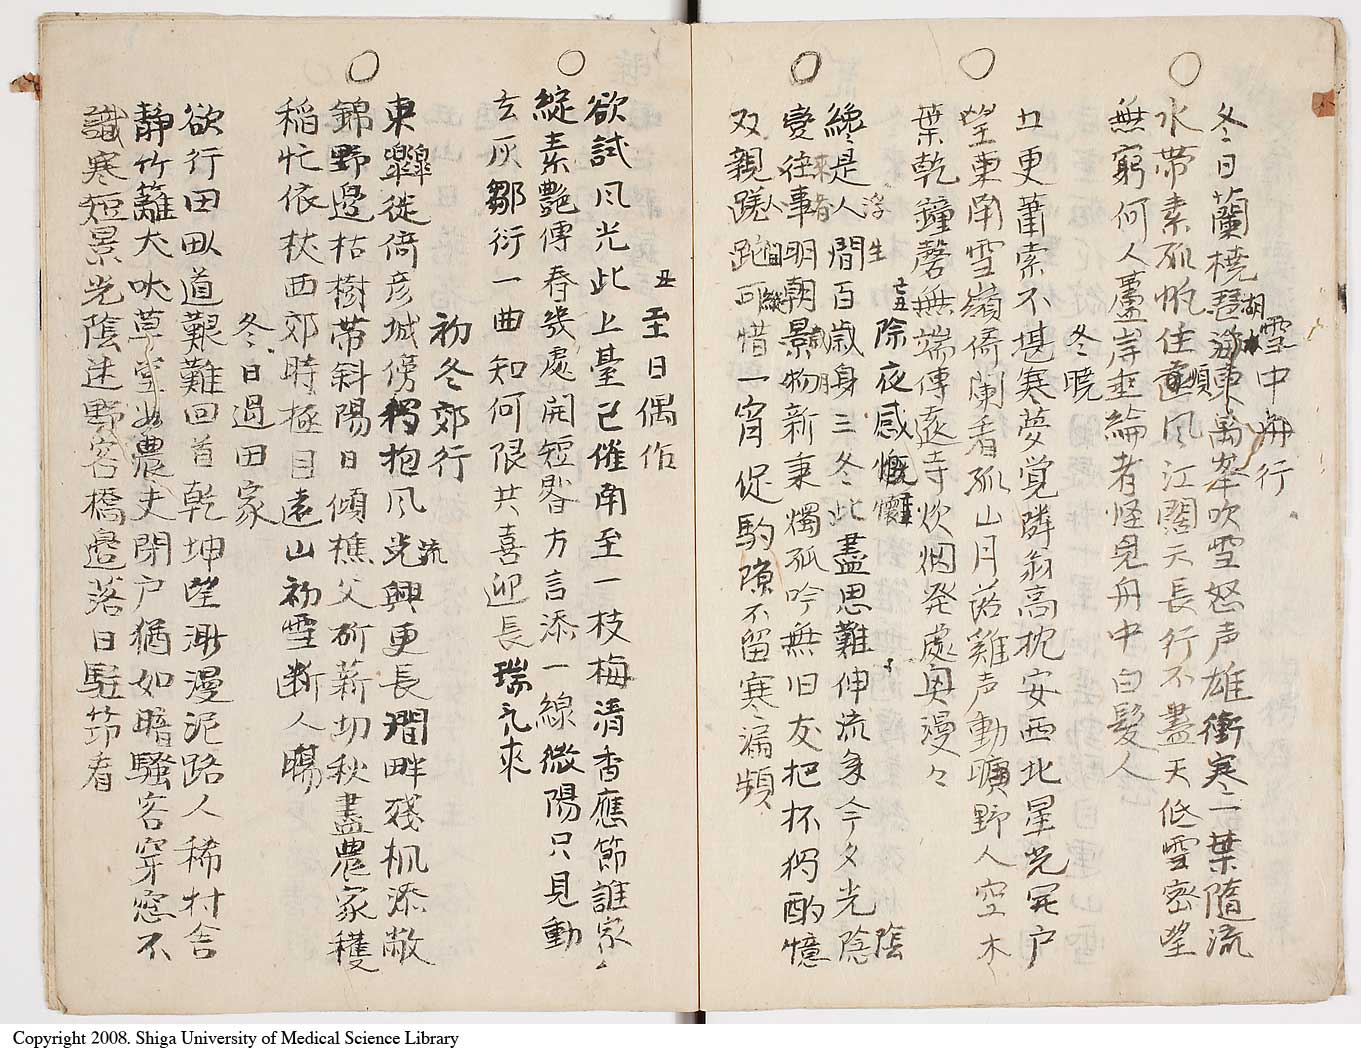 雪中舟行
冬日蘭橈琵湖東萬壑吹雪怒声雄衝寒一葉隨流
水帶素孤帆住逆風江闊天長行不盡天低雪密望
無窮何人蘆岸垂綸者怪見舟中白髮人
冬曉
五更蕭索不堪寒夢覚隣翁高枕安西北星光
望東南雪嶺倚蘭看孤山月落雞声動曠野人空木
葉乾鐘磬無端傳遠寺炊烟発處奥漫々
除夜感慨懷
纔是人間百歳身三冬此盡思難伸流多今夕光陰
變往事明朝景物新秉燭孤吟無旧友把杯獨酌憶
双親蹉跎可惜一宵促駒隙不留寒漏頻
浮生
來者
至日偶作
欲試風光此上臺已催南至一枝梅清香應節誰家
綻素艷傳春幾處開短晷方言添一線微陽只見動
玄灰鄒衍一曲知何限共喜迎長瑞气來
初冬郊行
東皐徙倚彦城傍獨抱風光興更長澗畔殘楓添敵
錦野邊枯樹帶斜陽日傾樵父斫薪切秋盡農家穫
稲忙依杖西郊時極目遠山初雪断人腸
冬日過田家
欲行田畝道艱難回首乾坤望渺漫泥路人稀村舎
靜竹籬犬吠草堂農夫閉戸猶如暗騷客穿窓不
識寒短景光陰迷野客橋邊落日駐笻看
Copyright 2008. Shiga University of Medical Science Library